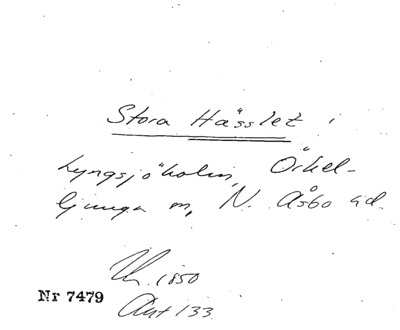 Stora Hässlet i
Lyngsjöholm, Örkel-
ljunga m, N. Åsbo äd.
1850
Nr 7479
Akt 133